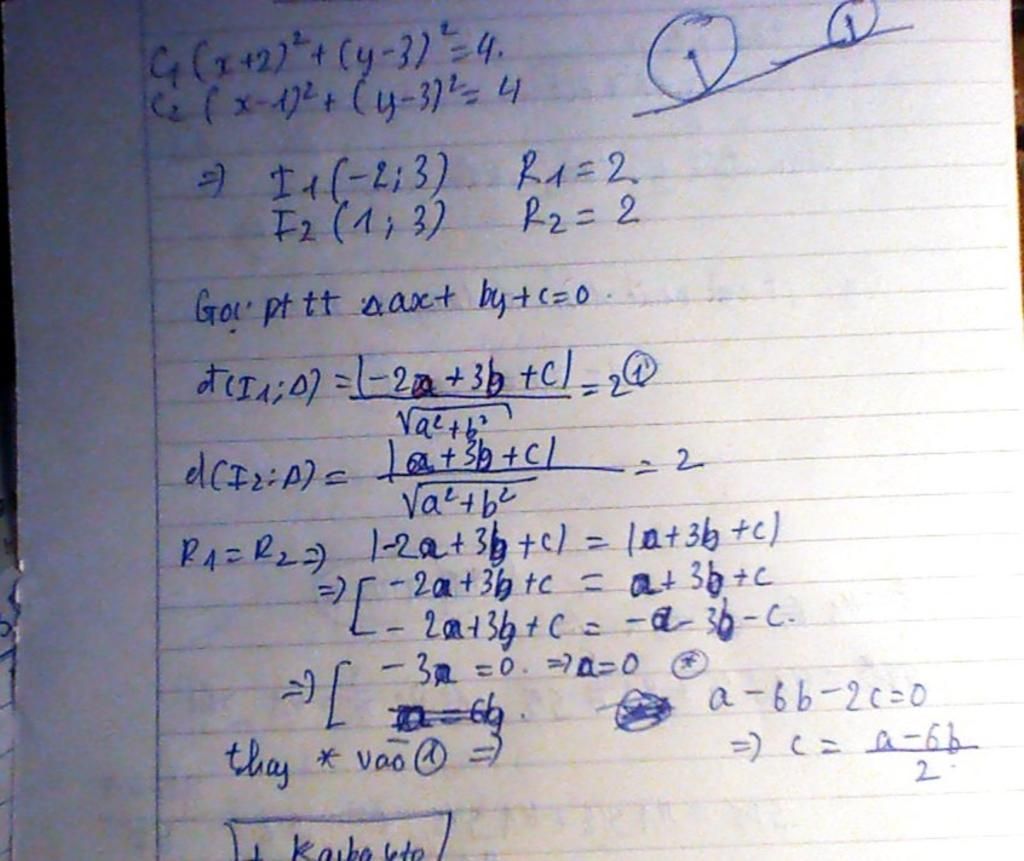 C₁ (x+2)² + (y-3)² = 4.
C₂ (x-1)² + (y-3)² = 4
=> I1 (-2; 3) R1 = 2
I2 (1; 3) R2 = 2
Gọi pt tt Δ ax + by + c = 0.
d(I1; Δ) = |-2a + 3b + c| / √(a² + b²) = 2 ①
d(I2; Δ) = |a + 3b + c| / √(a² + b²) = 2
R1 = R2 => |-2a + 3b + c| = |a + 3b + c|
=> [ -2a + 3b + c = a + 3b + c
- 2a + 3b + c = -a - 3b - c.
=> [ -3a = 0. => a = 0 (*)
a - 6b - 2c = 0
thay * vào ① =>
=> c = (a - 6b) / 2